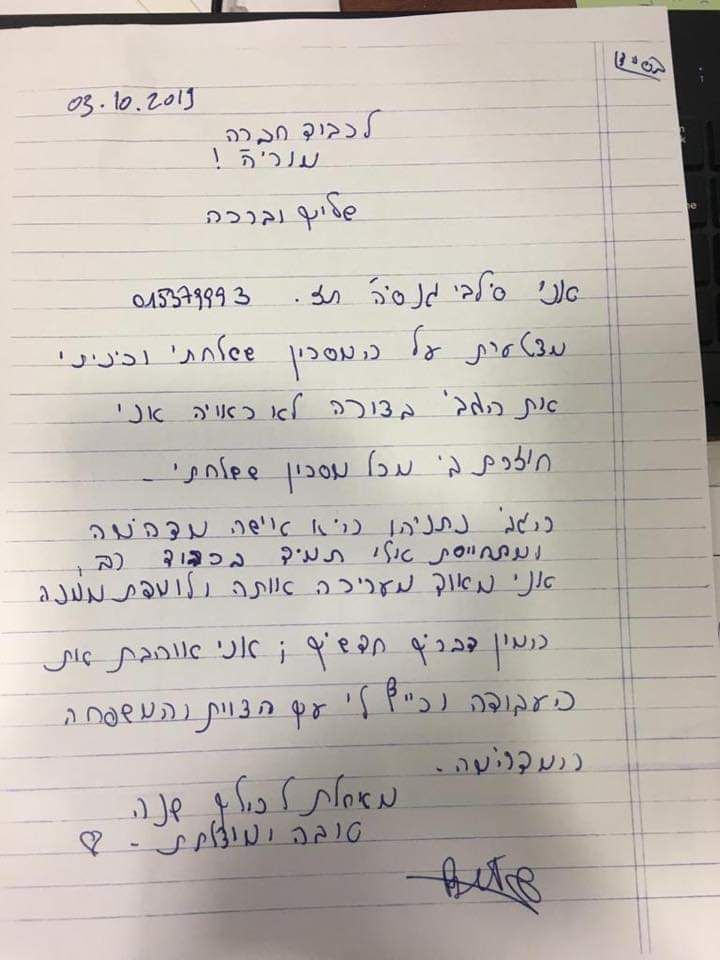 בס״ד
03.10.2019
לכבוד חברה
מוריה !
שלום וברכה
אני סילבי גנסיה תז. 015379993
מצטערת על המסרון ששלחתי וכיניתי
את הגב' בצורה לא ראויה אני
חוזרת בי מכל מסרון ששלחתי -
הגב' נתניהו היא אישה מדהימה
ומתחייסת אלי תמיד בכבוד רב,
אני מאוד מעריכה אותה ולומדת ממנה
המון דברים חדשים ; אני אוהבת את
העבודה וכייף לי עם הצוות והמשפחה
המדהימה.
מאחלת לכולם שנה
טובה ומוצלחת - ♡